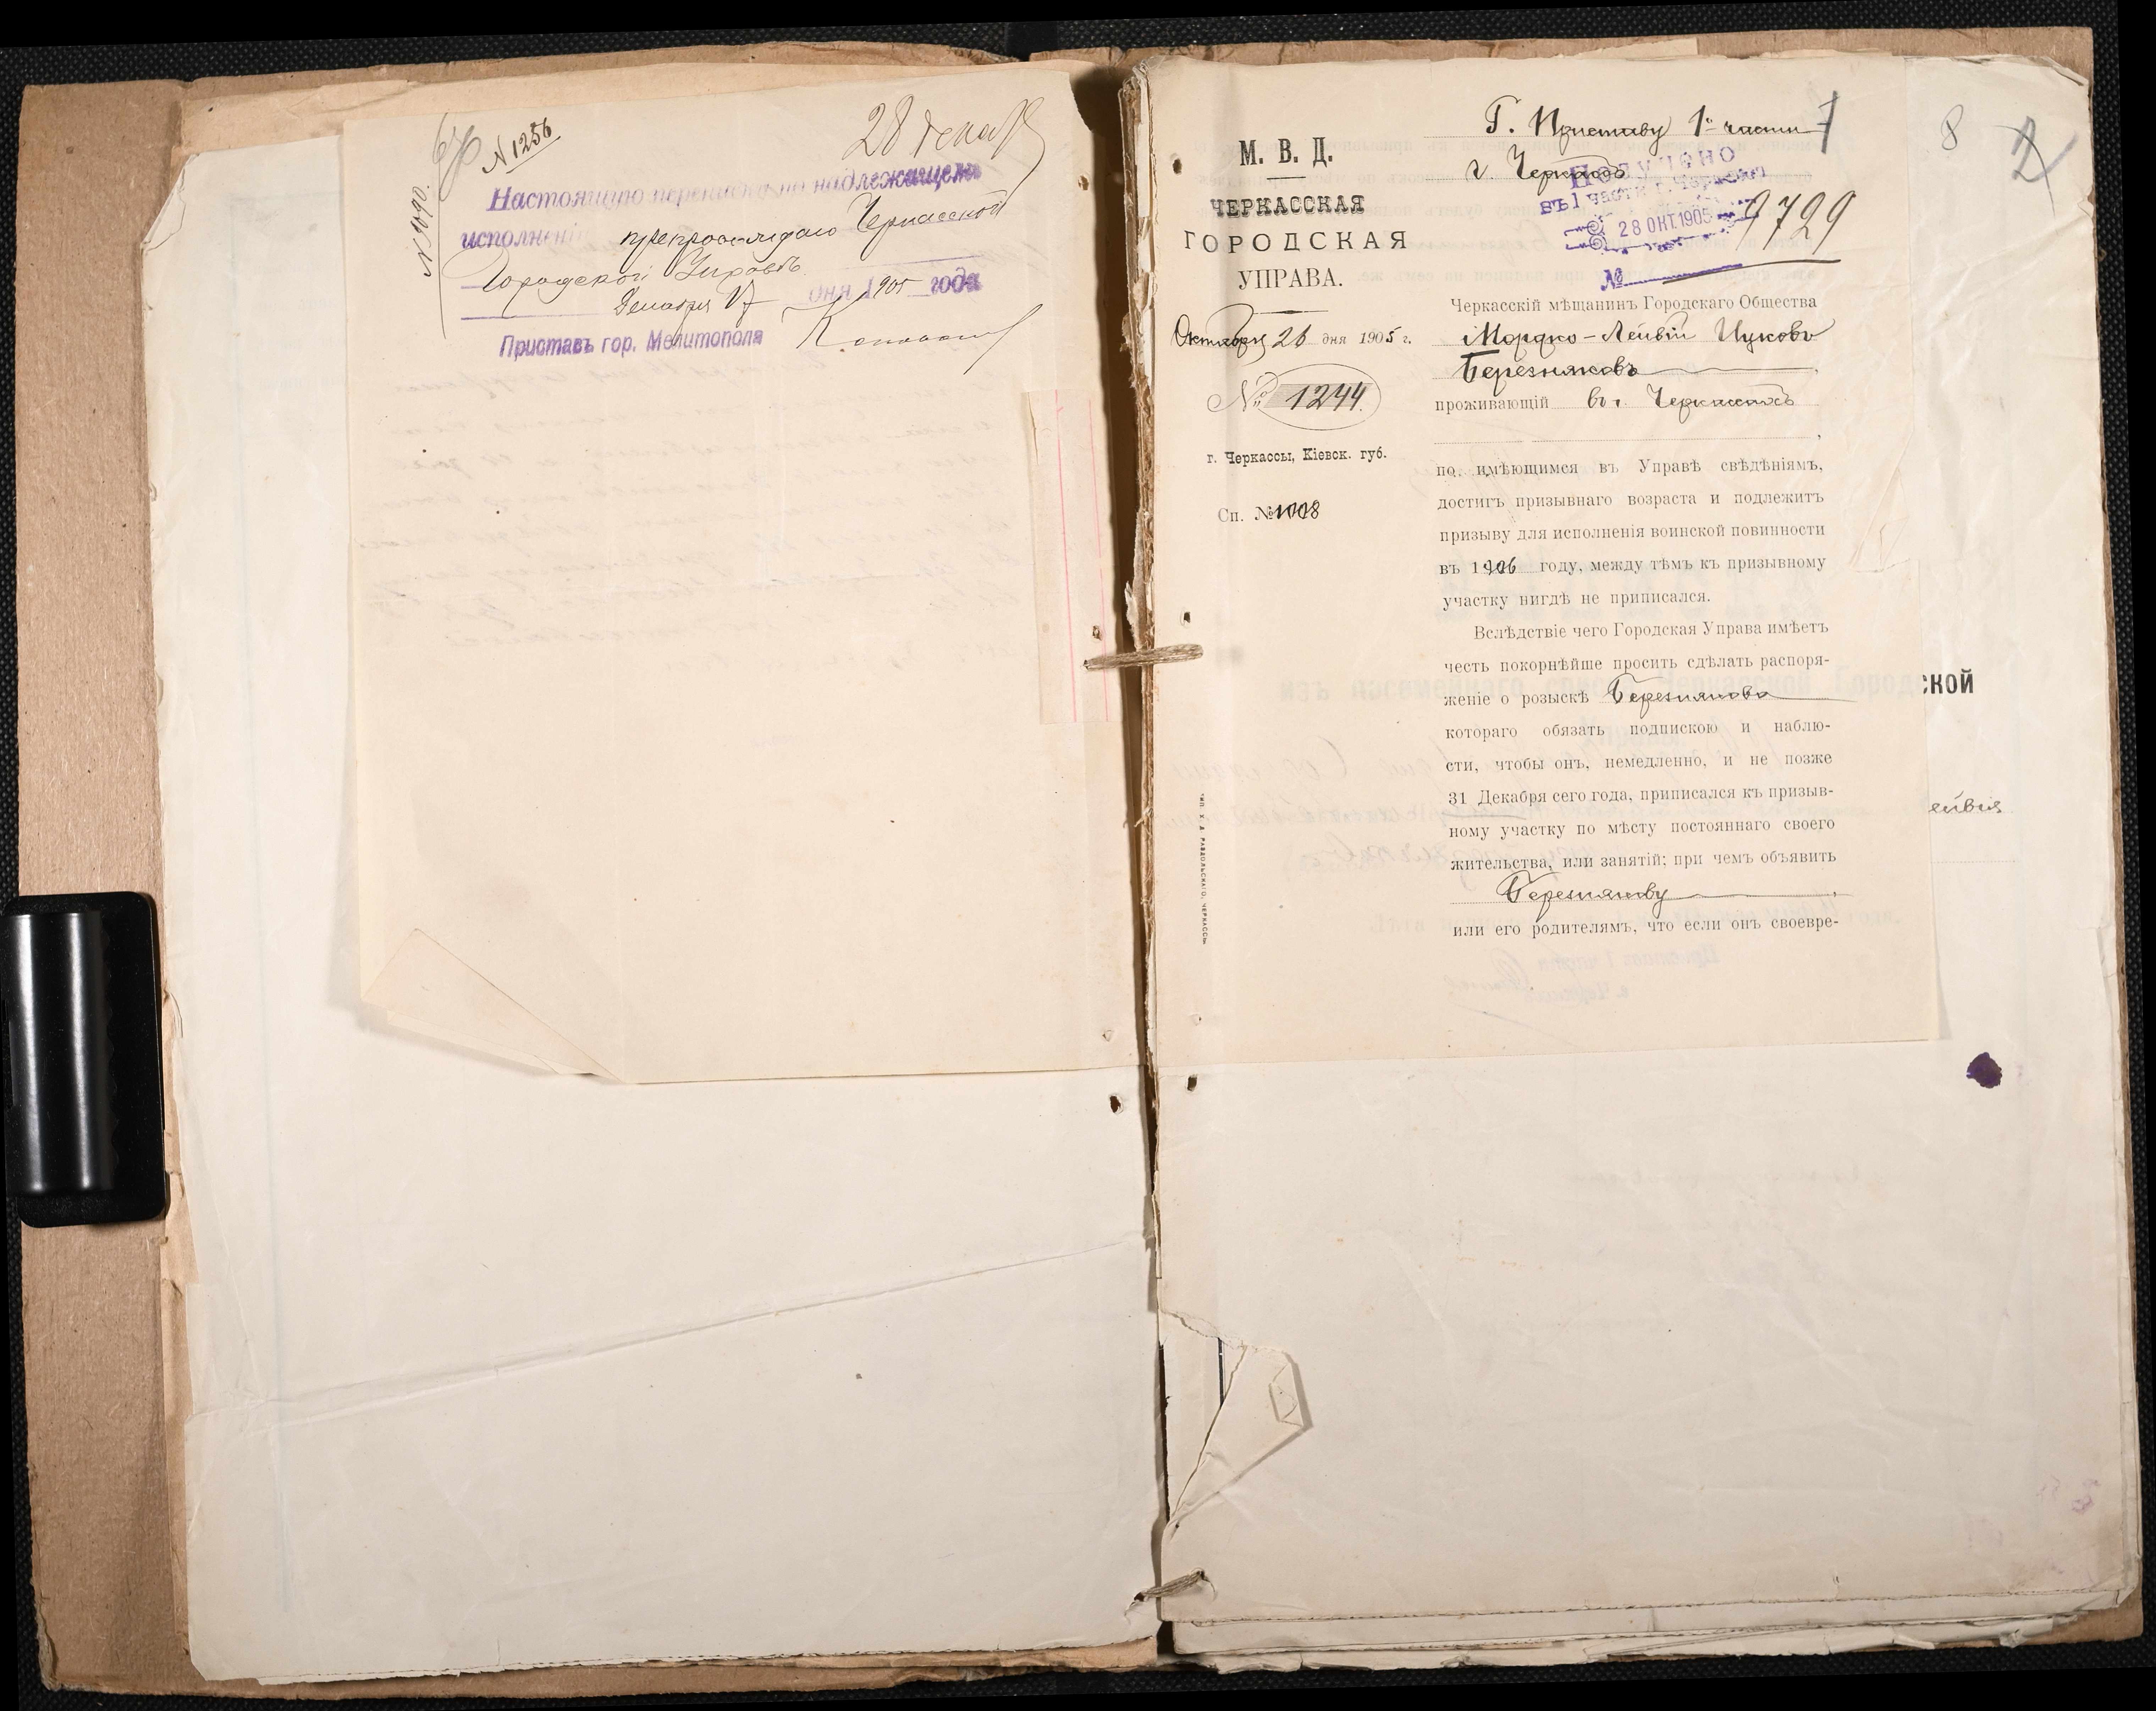 28 декабр
N 1256
N 5090.
Настоящую переписку по надлежащем
исполнении препровождаю Черкасской
Городской Управѣ.
Декабря 17 дня 1905 года
Приставъ гор. Мелитополя
М. В. Д.
ЧЕРКАССКАЯ
ГОРОДСКАЯ
УПРАВА.
Октября 26 дня 1905 г.
№ 1244.
г. Черкассы, Кіевск. губ.
Сп. № 1008
ТИП. Х. Д. РАЗДОЛЬСКАГО, ЧЕРКАССЫ.
Г. Приставу 1й части
г. Черкассъ
7
ПОЛУЧЕНО
въ 1 части г. Черкассъ
28 ОКТ. 1905
№ 9729
Черкасскій мѣщанинъ Городскаго Общества
Мордко-Лейвій Ицковъ
Березняковъ
проживающій въ г. Черкассахъ
по имѣющимся въ Управѣ свѣдѣніямъ,
достигъ призывнаго возраста и подлежитъ
призыву для исполненія воинской повинности
въ 1906 году, между тѣмъ къ призывному
участку нигдѣ не приписался.
Вслѣдствіе чего Городская Управа имѣетъ
честь покорнѣйше просить сдѣлать распоря-
женіе о розыскѣ Березнякова
котораго обязать подпискою и наблю-
сти, чтобы онъ, немедленно, и не позже
31 Декабря сего года, приписался къ призыв-
ному участку по мѣсту постояннаго своего
жительства, или занятій; при чемъ объявить
Березнякову
или его родителямъ, что если онъ своевре-
8
2
ской
ейвія